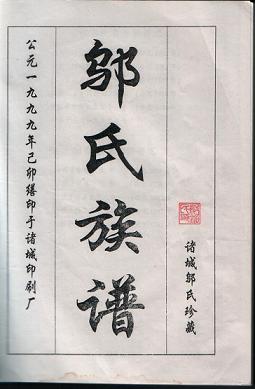 诸城邬氏珍藏
邬氏族谱
公元一九九九年己卯缮印于诸城印刷厂